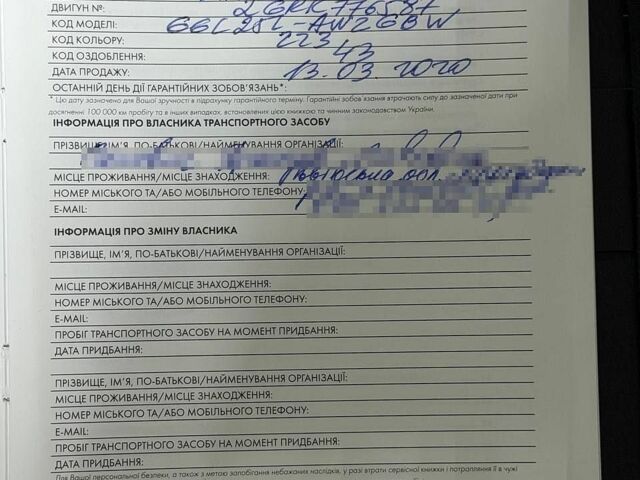 ДВИГУН №: 2GRK776587
КОД МОДЕЛІ: GGL25L-AWZGBW
КОД КОЛЬОРУ: 223
КОД ОЗДОБЛЕННЯ: 43
ДАТА ПРОДАЖУ: 13.03.2020
ОСТАННІЙ ДЕНЬ ДІЇ ГАРАНТІЙНИХ ЗОБОВ'ЯЗАНЬ*:
* Цю дату зазначено для Вашої зручності в підрахунку гарантійного терміну. Гарантійні зобов'язання втрачають силу до зазначеної дати при
досягненні 100 000 км пробігу та в інших випадках, встановлених цією книжкою та чинним законодавством України.
ІНФОРМАЦІЯ ПРО ВЛАСНИКА ТРАНСПОРТНОГО ЗАСОБУ
ПРІЗВИЩЕ, ІМ'Я, ПО-БАТЬКОВІ/НАЙМЕНУВАННЯ ОРГАНІЗАЦІЇ:
МІСЦЕ ПРОЖИВАННЯ/МІСЦЕ ЗНАХОДЖЕННЯ: обл.
НОМЕР МІСЬКОГО ТА/АБО МОБІЛЬНОГО ТЕЛЕФОНУ:
E-MAIL:
ІНФОРМАЦІЯ ПРО ЗМІНУ ВЛАСНИКА
ПРІЗВИЩЕ, ІМ'Я, ПО-БАТЬКОВІ/НАЙМЕНУВАННЯ ОРГАНІЗАЦІЇ:
МІСЦЕ ПРОЖИВАННЯ/МІСЦЕ ЗНАХОДЖЕННЯ:
НОМЕР МІСЬКОГО ТА/АБО МОБІЛЬНОГО ТЕЛЕФОНУ:
E-MAIL:
ПРОБІГ ТРАНСПОРТНОГО ЗАСОБУ НА МОМЕНТ ПРИДБАННЯ:
ДАТА ПРИДБАННЯ:
ПРІЗВИЩЕ, ІМ'Я, ПО-БАТЬКОВІ/НАЙМЕНУВАННЯ ОРГАНІЗАЦІЇ:
МІСЦЕ ПРОЖИВАННЯ/МІСЦЕ ЗНАХОДЖЕННЯ:
НОМЕР МІСЬКОГО ТА/АБО МОБІЛЬНОГО ТЕЛЕФОНУ:
E-MAIL:
ПРОБІГ ТРАНСПОРТНОГО ЗАСОБУ НА МОМЕНТ ПРИДБАННЯ:
ДАТА ПРИДБАННЯ:
Для Вашої персональної безпеки, а також з метою запобігання небажаних наслідків, у разі втрати сервісної книжки і потрапляння її в чужі